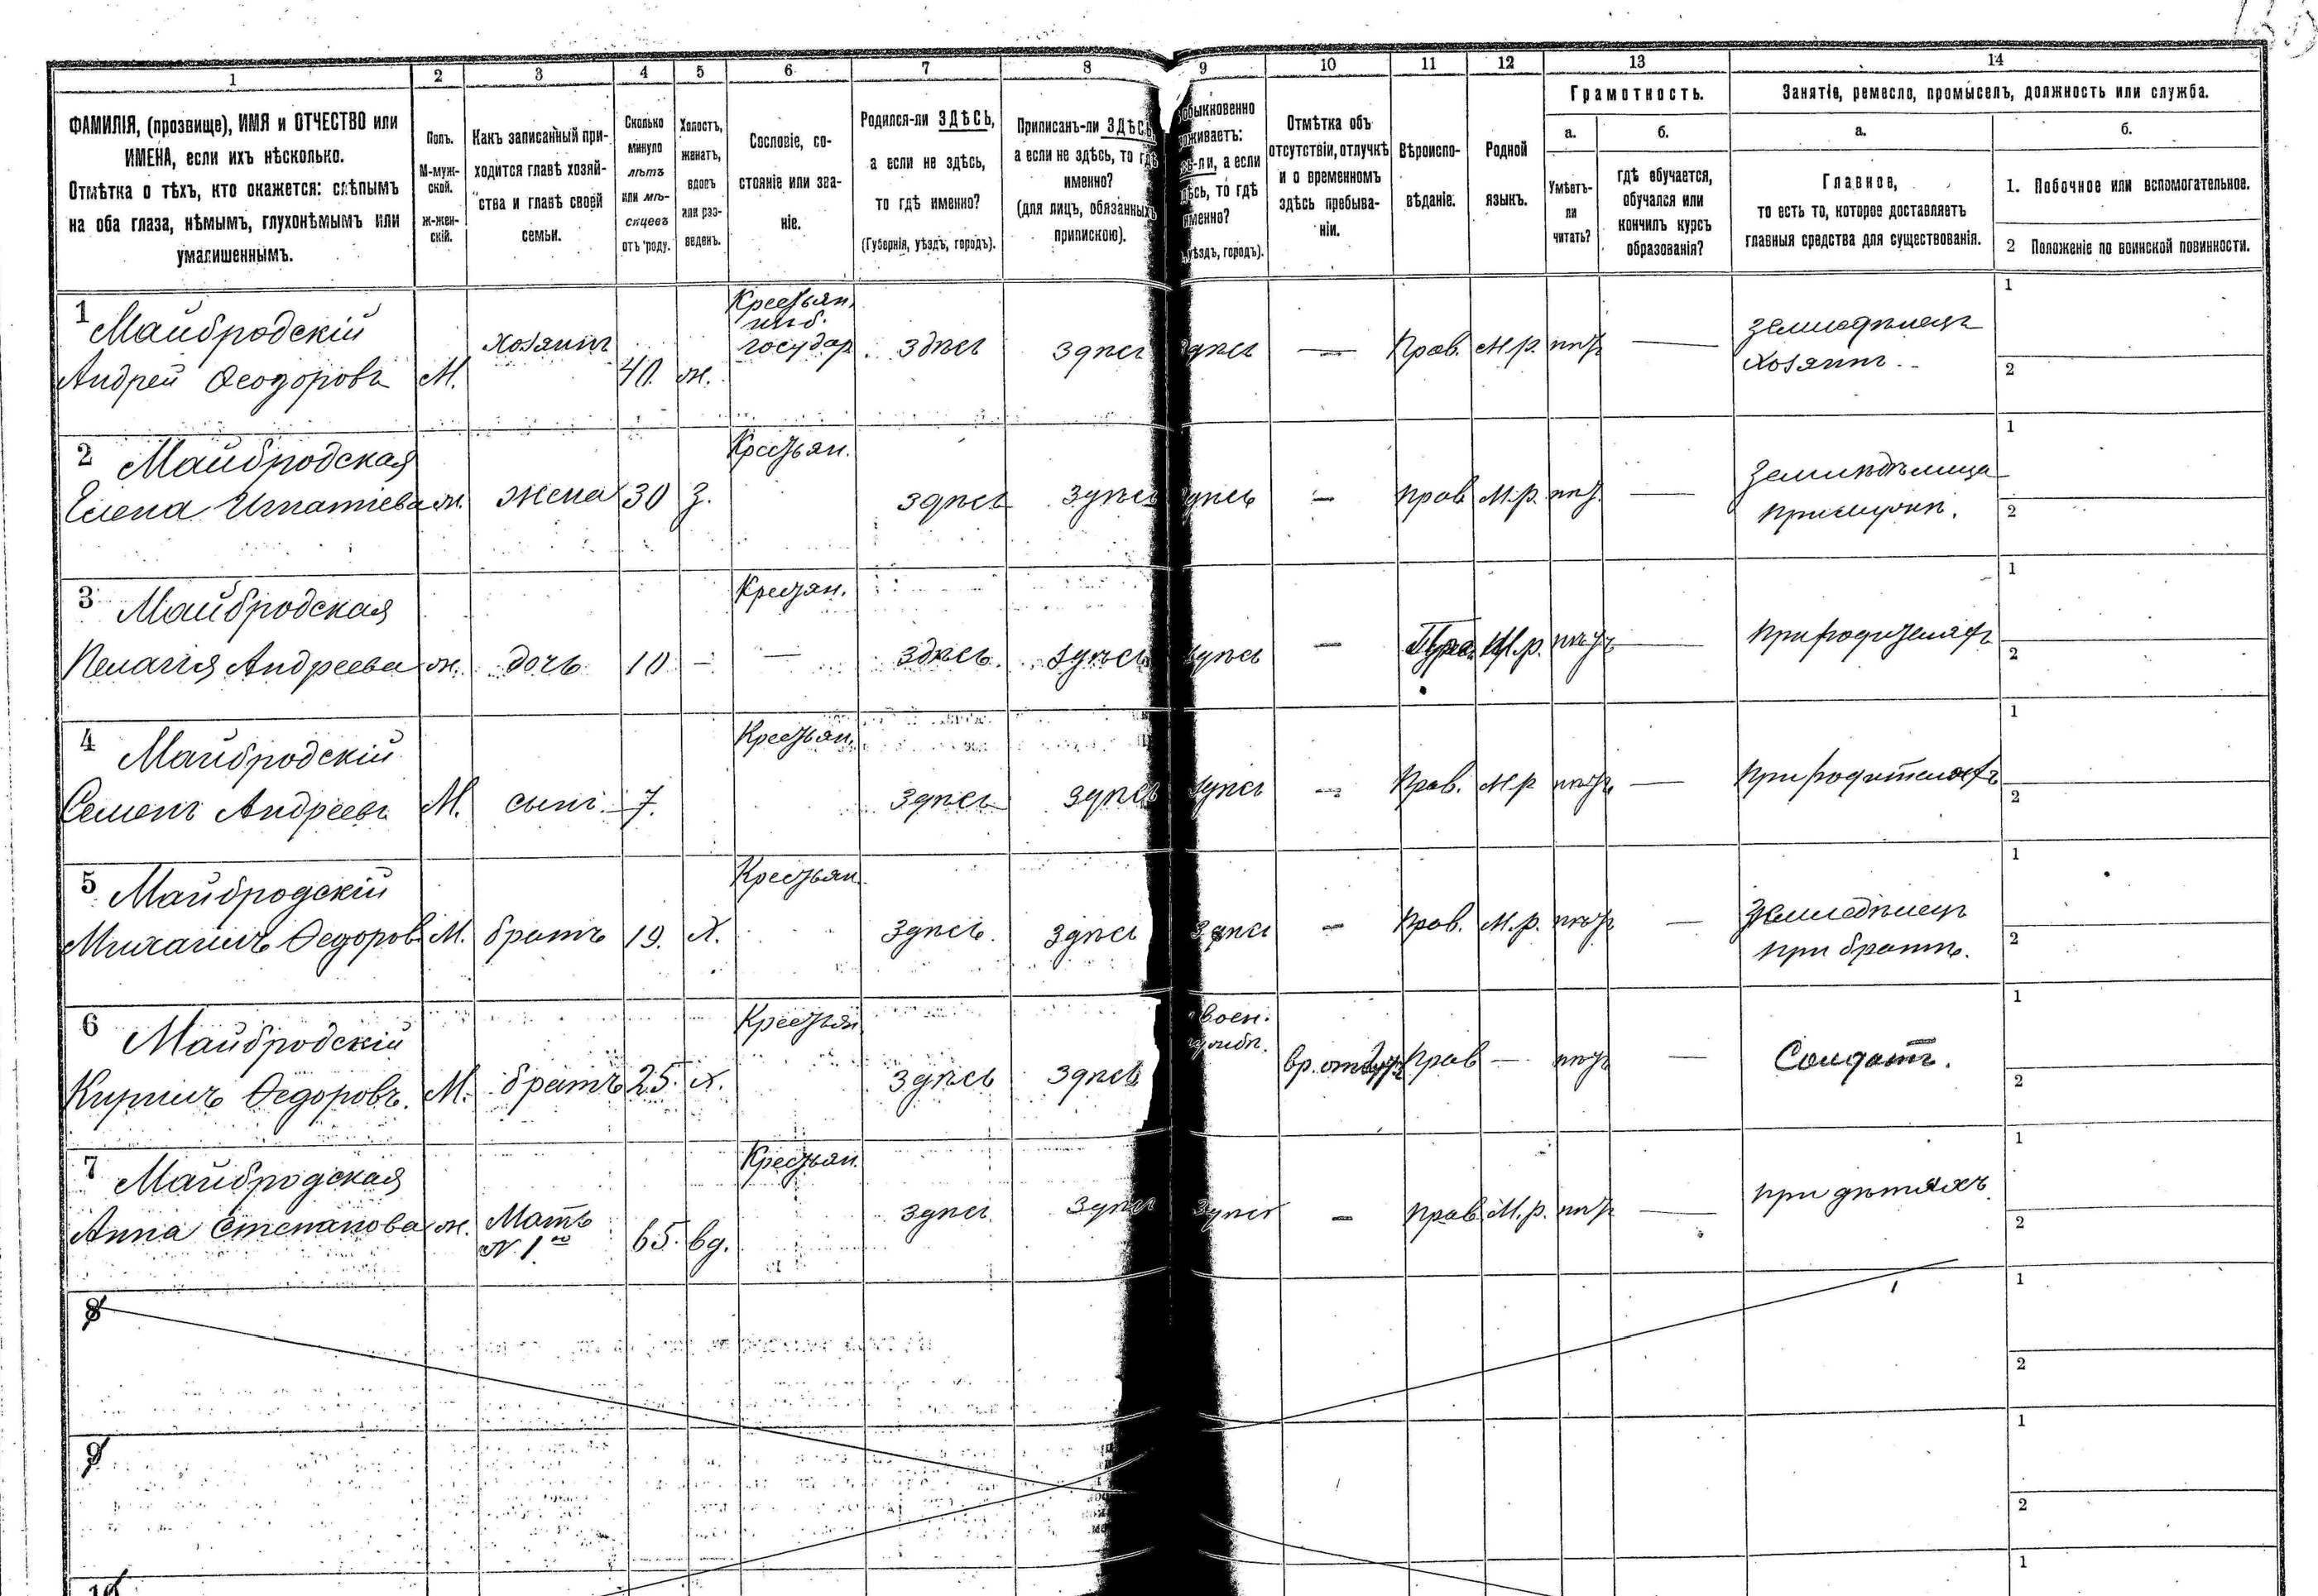 1 2 3 4 5 6 7 8 9 10 11 12 13 14
ФАМИЛІЯ, (прозвище), ИМЯ и ОТЧЕСТВО или
ИМЕНА, если ихъ нѣсколько.
Отмѣтка о тѣхъ, кто окажется: слѣпымъ
на оба глаза, нѣмымъ, глухонѣмымъ или
умалишеннымъ.
Полъ.
М-муж-
ской.
ж-жен-
скій.
Какъ записанный при-
ходится главѣ хозяй-
ства и главѣ своей
семьи.
Сколько
минуло
лѣтъ
или мѣ-
сяцевъ
отъ роду.
Холостъ,
женатъ,
вдовъ
или раз-
веденъ.
Сословіе, со-
стояніе или зва-
ніе.
Родился-ли ЗДѢСЬ,
а если не здѣсь,
то гдѣ именно?
(Губернія, уѣздъ, городъ).
Приписанъ-ли ЗДѢСЬ,
а если не здѣсь, то гдѣ
именно?
(для лицъ, обязанныхъ
припискою).
обыкновенно
оживаетъ:
ли, а если
то гдѣ
именно?
уѣздъ, городъ).
Отмѣтка объ
отсутствіи, отлучкѣ
и о временномъ
здѣсь пребыва-
ніи.
Вѣроиспо-
вѣданіе.
Родной
языкъ.
Грамотность.
а.
Умѣетъ-
ли
читать?
б.
гдѣ обучается,
обучался или
кончилъ курсъ
образованія?
Занятіе, ремесло, промыселъ, должность или служба.
а.
Главное,
то есть то, которое доставляетъ
главныя средства для существованія.
б.
1. Побочное или вспомогательное.
2 Положеніе по воинской повинности.
1 Майбродскій
Андрей Ѳеодоровъ М. хозяинъ 40. ж. Крестьян. государ. здѣсь здѣсь здѣсь — Прав. М.р. — земледѣлецъ
хозяинъ. 1 2
2 Майбродская
Елена Игнатіева ж. жена 30 з. Крестьян. здѣсь здѣсь здѣсь — прав М.р. — 1 2
3 Майбродская
Пелагія Андреева ж. дочь 10 - Крестян. — здѣсь. здѣсь здѣсь — М.р. — при родителяхъ 1 2
4 Майбродскій
Семенъ Андреевъ М. сынъ. 7. Крестьян. здѣсь здѣсь здѣсь — Прав. М.р — при родителяхъ 1 2
5 Майбродскій
Михаилъ Ѳедоров М. братъ 19. х. Крестьян. здѣсь. здѣсь здѣсь — Прав. М.р. — Земледѣлецъ
при братѣ. 1 2
6 Майбродскій
Кирилъ Ѳедоровъ. М. братъ 25. х. Крестьян здѣсь здѣсь воен. Прав — — Солдатъ. 1 2
7 Майбродская
Анна Степанова ж. Мать
№ 1го 65. вд. Крестьян. здѣсь здѣсь здѣсь — прав М.р. — при дѣтяхъ. 1 2
8 1 2
9 1 2
10 1